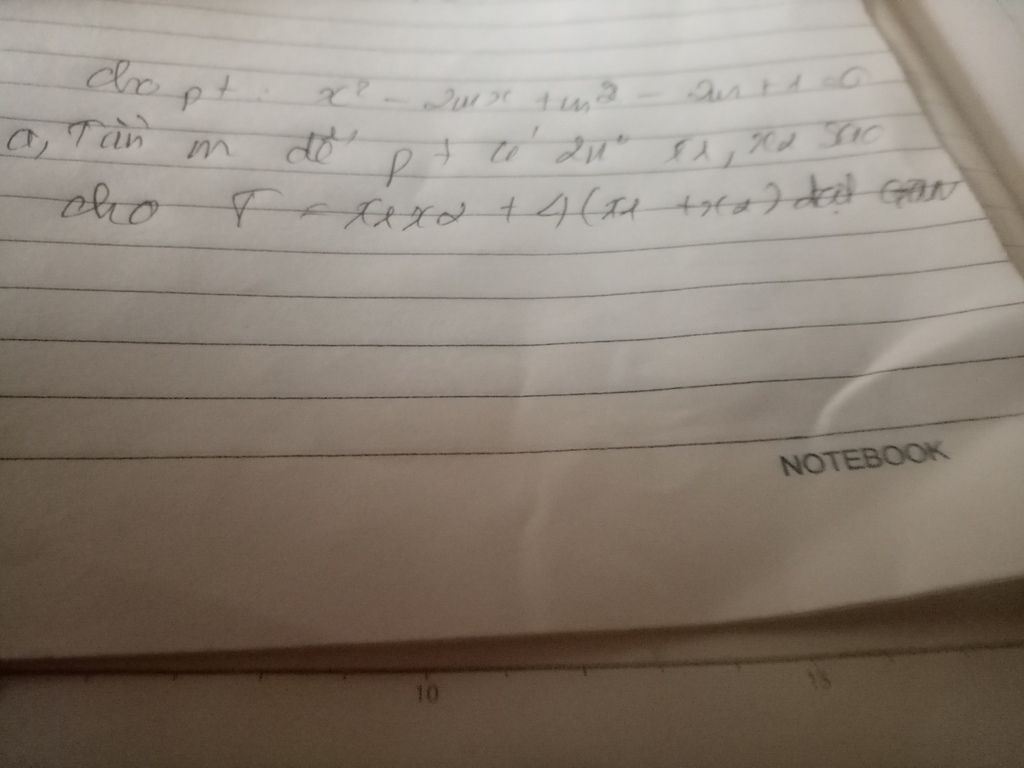 cho pt : x² - 2mx + m² - 2m + 1 = 0
a, Tìm m để pt có 2n⁰ x1, x2 sao
cho T = x1x2 + 4(x1 + x2) đạt GTNN
NOTEBOOK
10
15